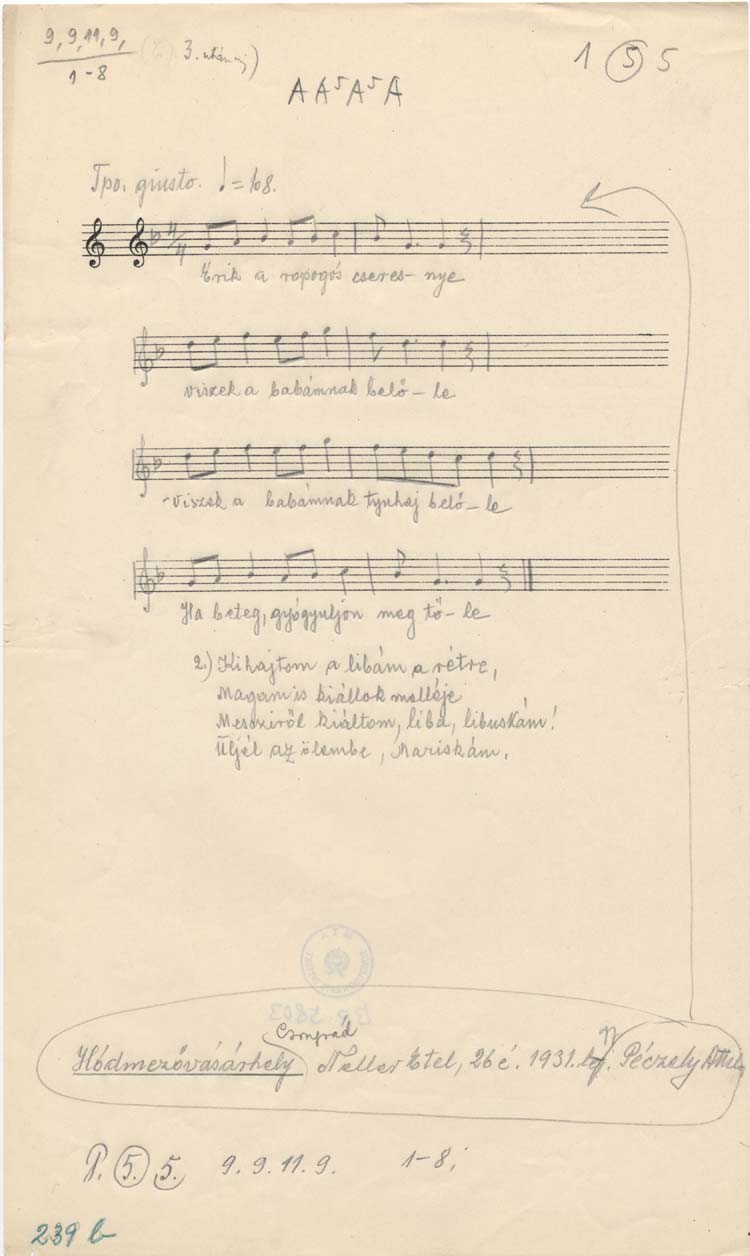 9, 9, 11, 9,
1-8
3.
1 5 5
A A⁵ A⁵ A
Tpo. giusto. ♩=168.
4/4
Érik a ropogós cseres- nye
viszek a babámnak belő- le
-viszek a babámnak tyuhaj belő- le
Ha beteg, gyógyuljon meg tő- le
2.) Kihajtom a libám a rétre,
Magam is kiállok melléje
Messziről kiáltom, liba, libuskám!
Üljél az ölembe, Mariskám.
Csongrád
Hódmezővásárhely Neller Etel, 26 é. 1931. Péczely Attila
5. 5. 9. 9. 11. 9. 1-8;
239 b